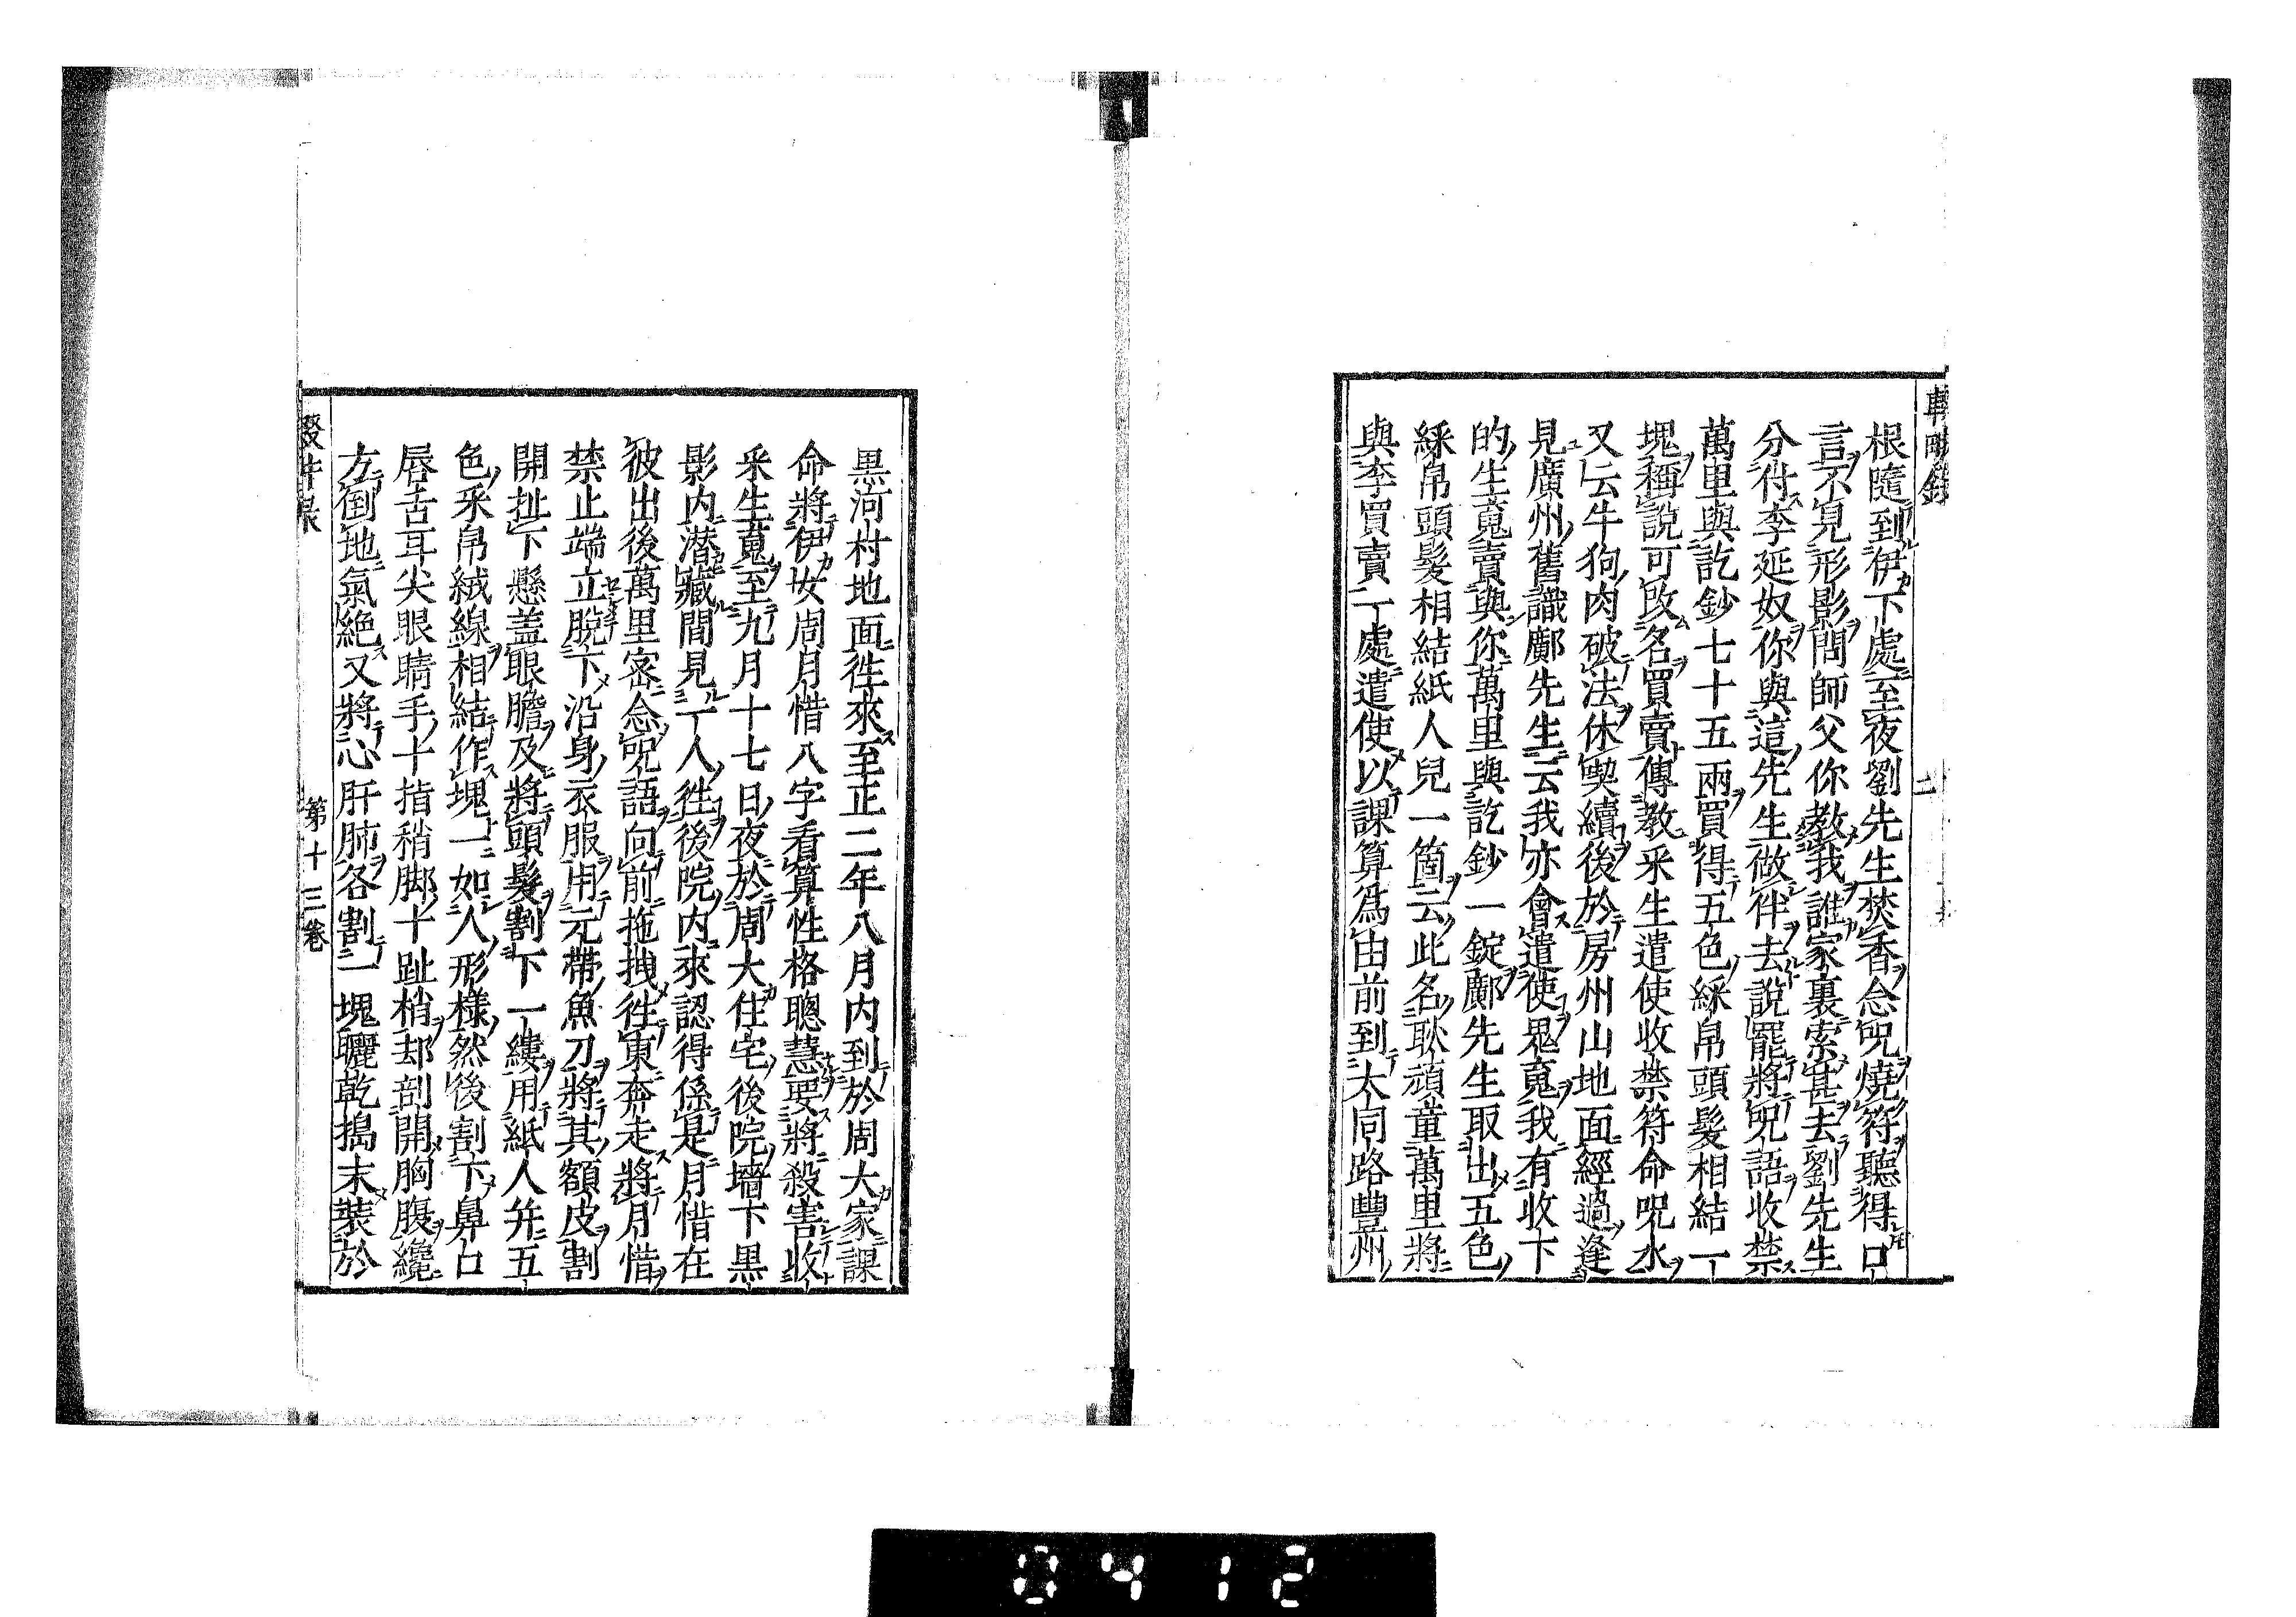 輟畊錄
根隨到伊下處至夜劉先生焚香念呪燒符聽得口
言不見形影問師父你教我誰家裏索甚去劉先生
分付李延奴你與這先生做伴去說罷將呪語收禁
萬里與訖鈔七十五兩買得五色綵帛頭髮相結一
塊稱說可改名買賣傳教采生遣使收禁符命呪水
又云牛狗肉破法休喫續後於房州山地面經過逢
見廣州舊識鄺先生云我亦會遣使鬼䰟我有收下
的生䰟賣與你萬里與訖鈔一錠鄺先生取出五色
綵帛頭髮相結紙人兒一箇云此名耿頑童萬里將
與李買賣一處遣使以課算爲由前到大同路豐州
黒河村地面徃來至正二年八月内到於周大家課
命將伊女周月惜八字看算性格聰慧要將殺害收
采生䰟至九月十七日夜於周大住宅後院墻下黒
影内潜藏間見一人徃後院内來認得係是月惜在
彼出後萬里密念呪語向前拖拽徃東奔走將月惜
禁止端立脫下沿身衣服用元帶魚刀將其額皮割
開扯下懸盖眼膽及將頭髮割下一縷用紙人并五
色采帛絨線相結作塊一如人形樣然後割下鼻口
唇舌耳尖眼睛手十指稍脚十趾梢却剖開胸腹纔
方倒地氣絶又將心肝肺各割一塊曬乾搗末裝於
第十三卷
0412